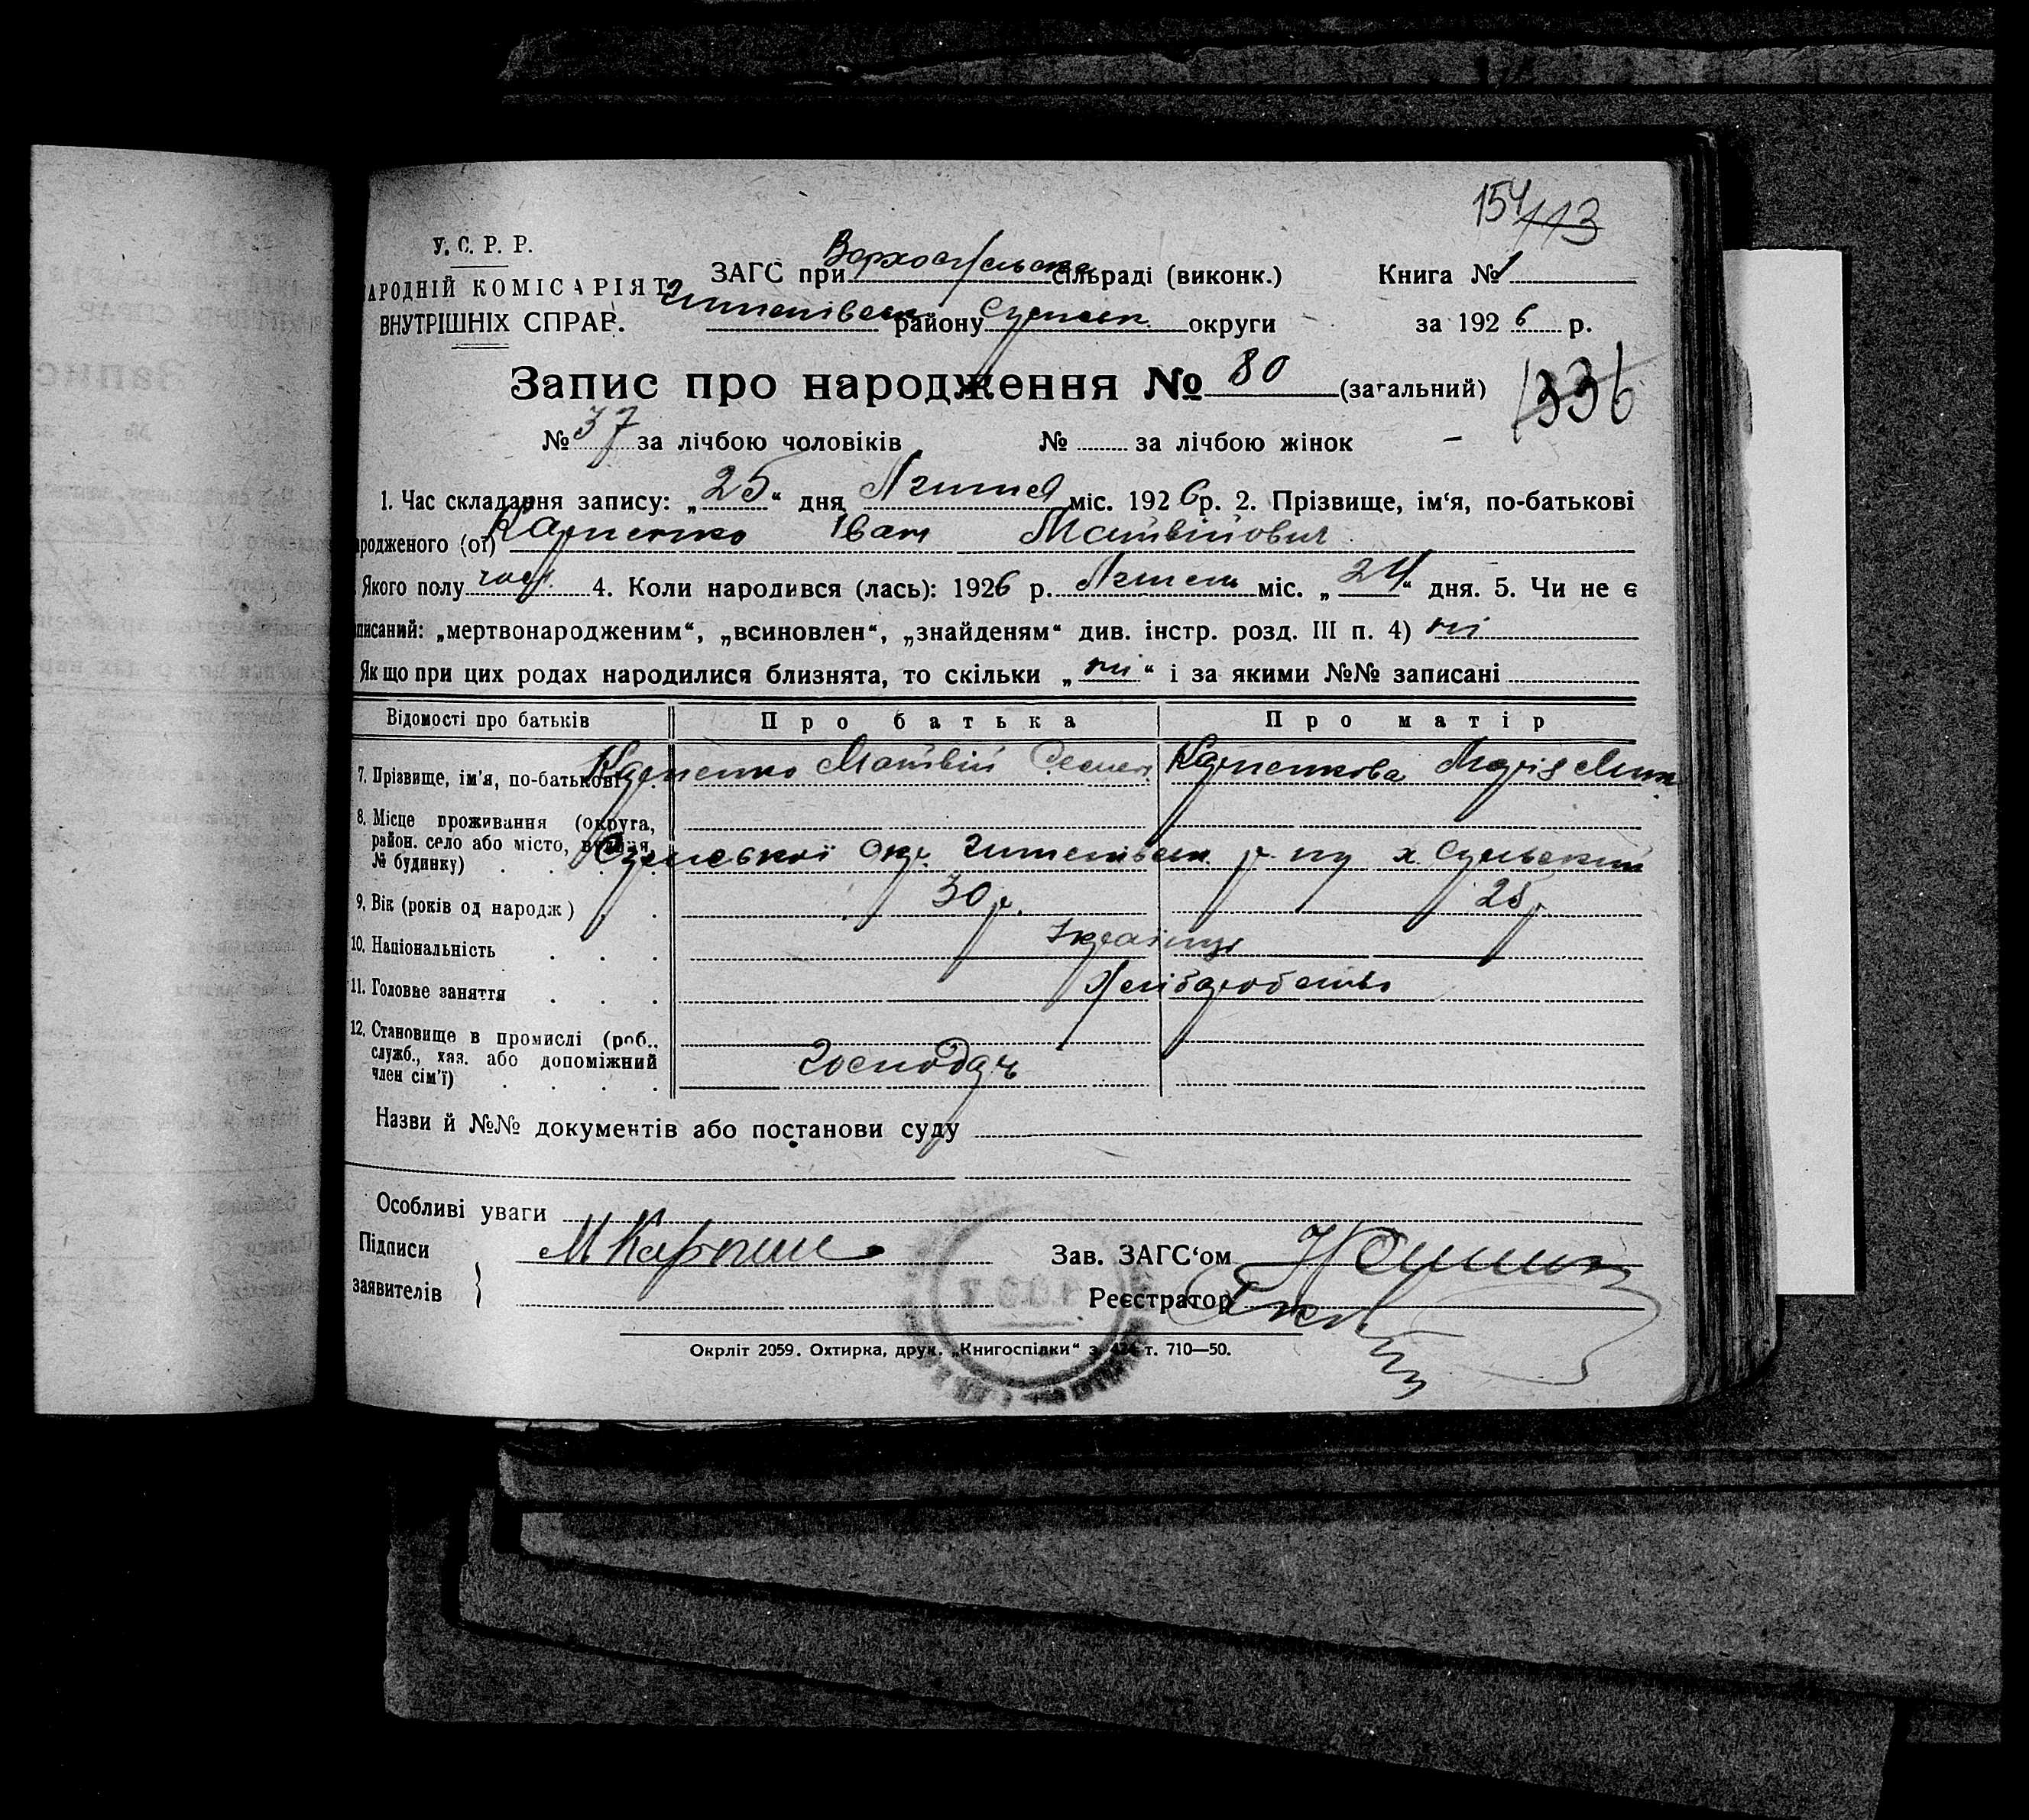 154 113
У. С. Р. Р.
ЗАГС при Верхосульська сільраді (виконк.) Книга № 1
АРОДНІЙ КОМІСАРІЯТ
ВНУТРІШНІХ СПРАВ.
Штепівськ району Сумськ округи за 1926 р.
Запис про народження № 80 (загальний)
1336
№ 37 за лічбою чоловіків № за лічбою жінок –
1. Час складання запису: „25“ дня міс. 1926 р. 2. Прізвище, ім‘я, по-батькові
родженого (ої) Карпенко Іван Матвійович
Якого полу чол. 4. Коли народився (лась): 1926 р. міс. „24“ дня. 5. Чи не є
писаний: „мертвонародженим“, „всиновлен“, „знайденям“ див. інстр. розд. III п. 4) ні
Якщо при цих родах народилися близнята, то скільки „ні“ і за якими №№ записані
Відомості про батьків Про батька Про матір
7. Прізвище, ім‘я, по-батькові Карпенко Матвій Карпенкова Марія
8. Місце проживання (округа,
район. село або місто, вулиця,
№ будинку) Сумської Окр. Штепівськ. р. х. Сульский
9. Вік (років од народж) 30 р. 25 р
10. Національність Українці
11. Головне заняття Хліборобство
12. Становище в промислі (роб.,
служб., хаз. або допоміжний
член сім‘ї) Господар
Назви й №№ документів або постанови суду
Особливі уваги
Підписи
заявителів } МКарпен
Зав. ЗАГС‘ом
Реєстратор
Окрліт 2059. Охтирка, друк. „Книгоспілки“ з. 474 т. 710—50.